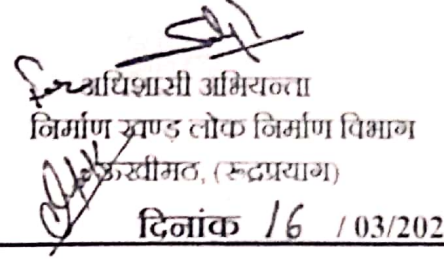 for अधिशासी अभियन्ता
निर्माण खण्ड लोक निर्माण विभाग
ऊखीमठ, (रूद्रप्रयाग)
दिनांक 16 / 03/202